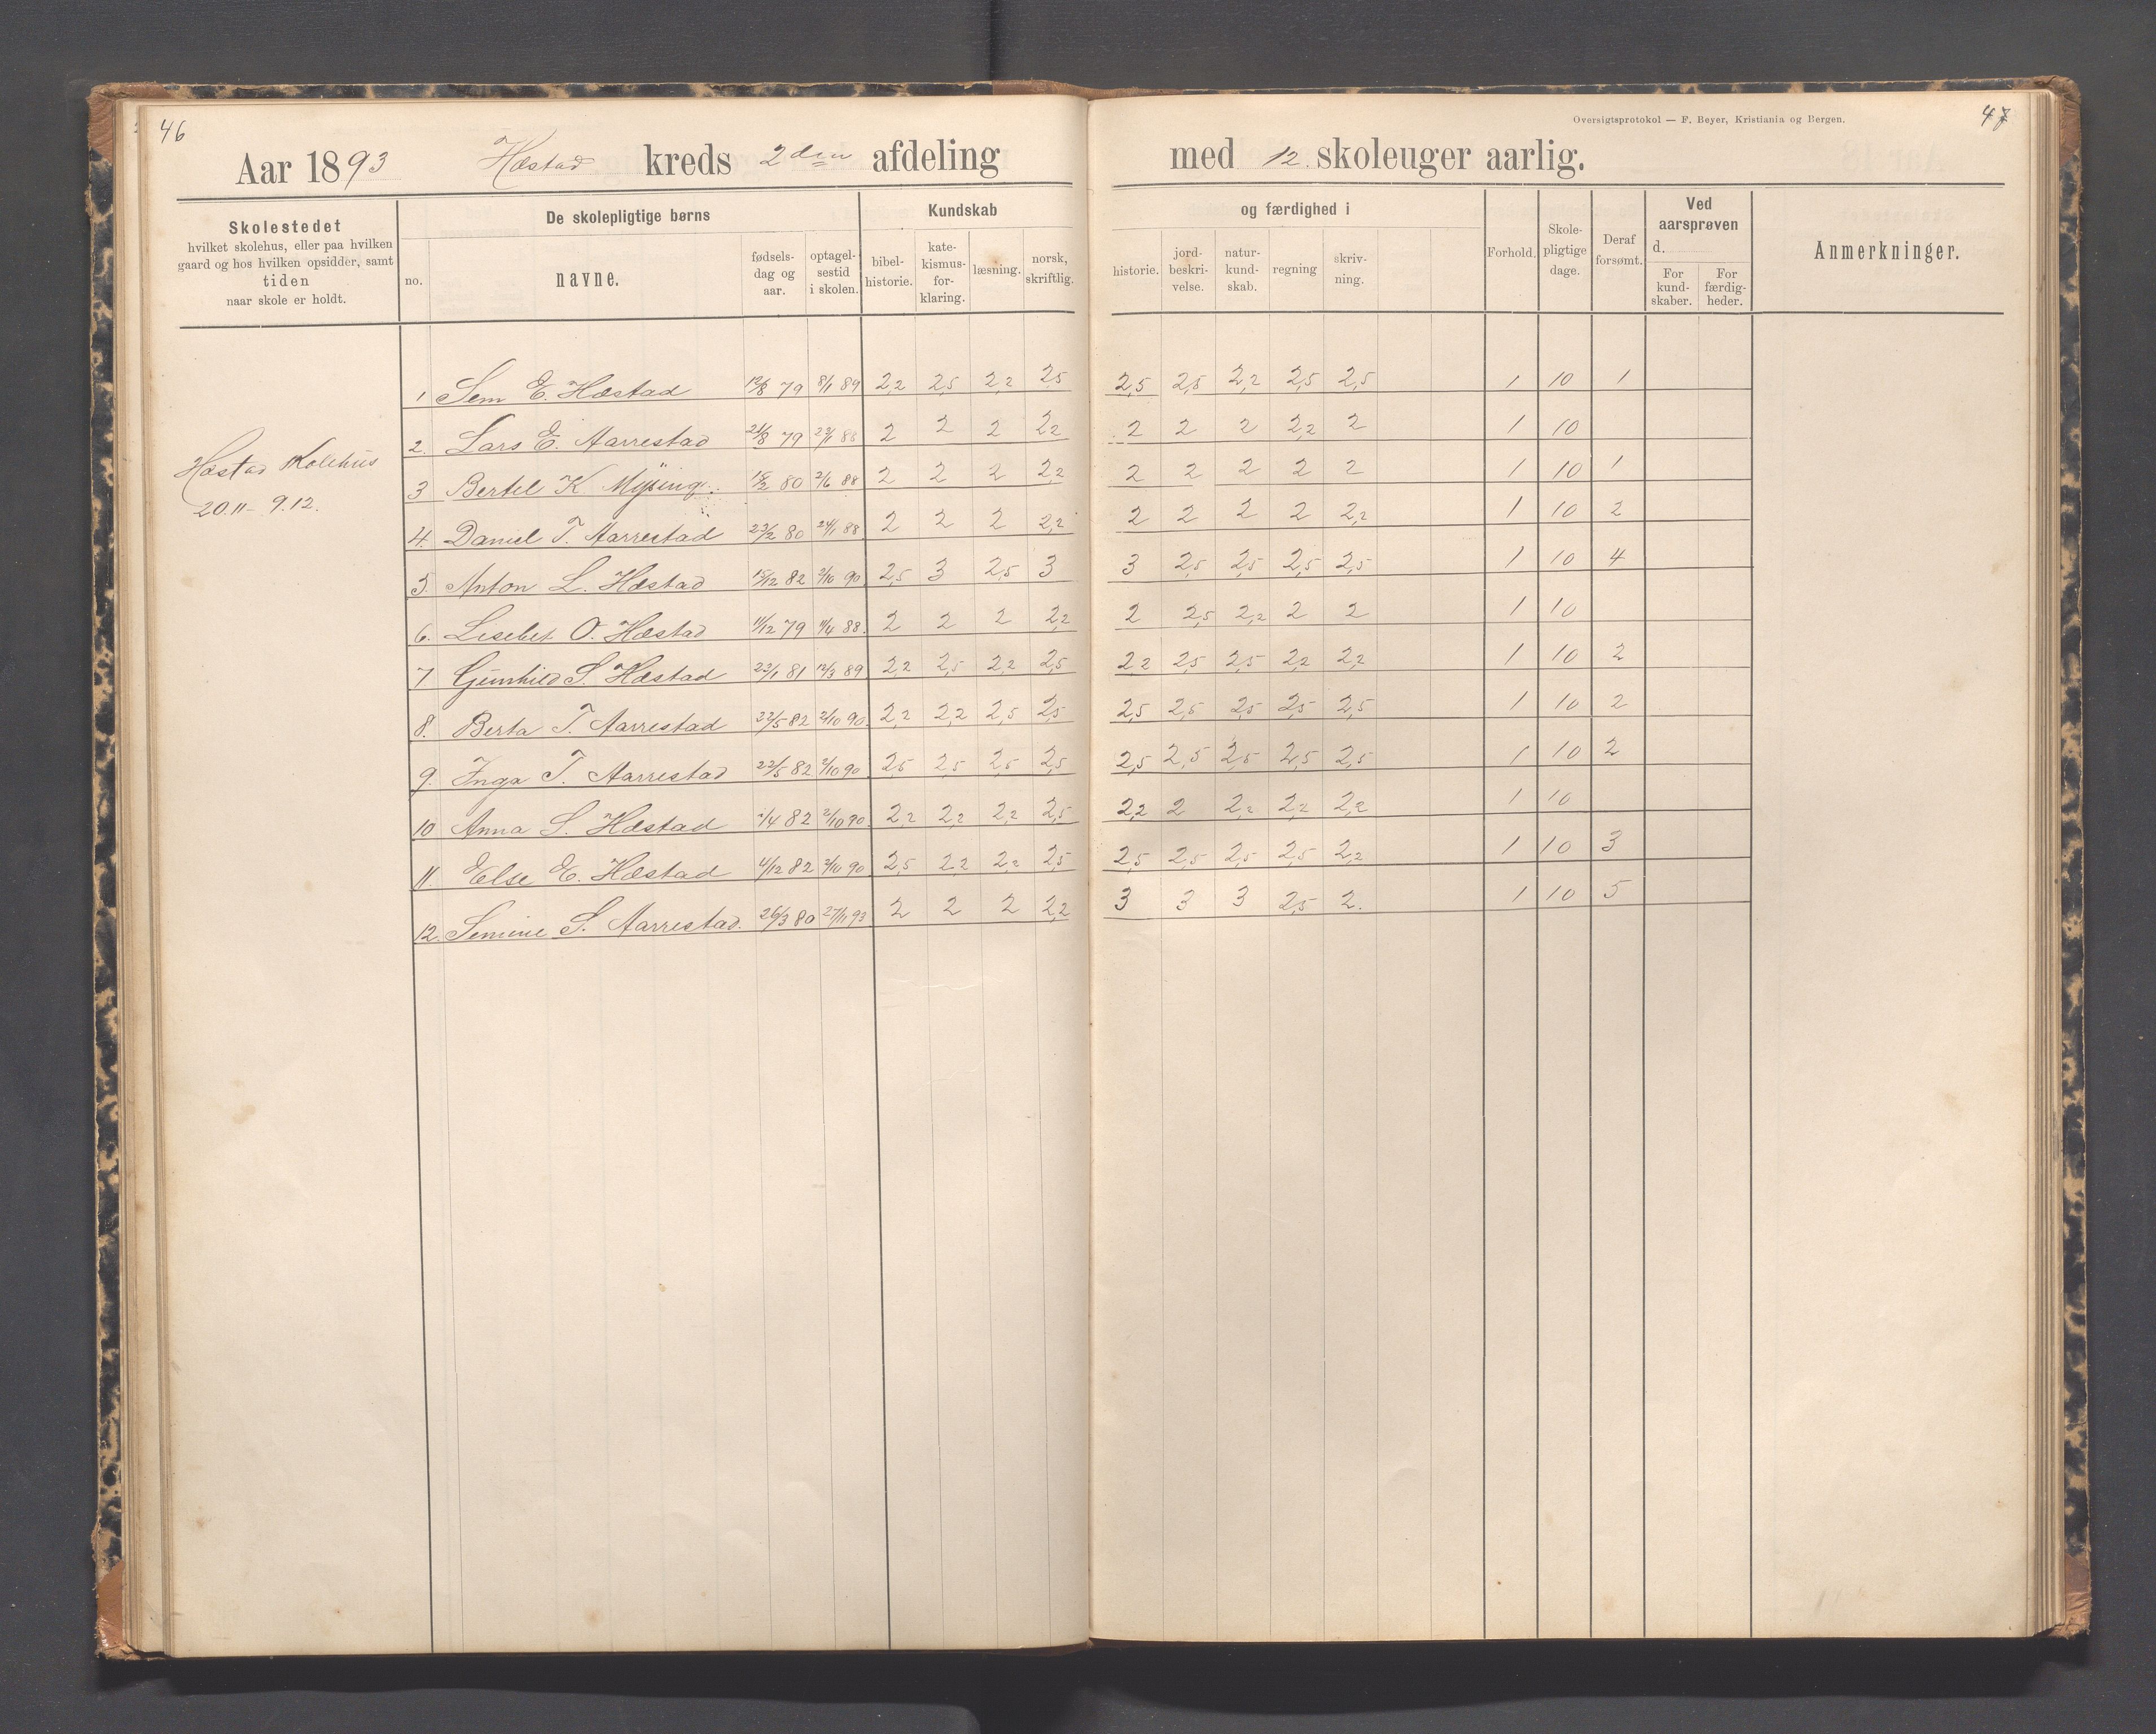 46
Aar 1893 Hæstad kreds 2den afdeling
Skolestedet
hvilket skolehus, eller paa hvilken
gaard og hos hvilken opsidder, samt
tiden
naar skole er holdt.
De skolepligtige børns
no.
navne.
fødsels-
dag og
aar.
optagel-
sestid
i skolen.
Kundskab
bibel-
historie.
kate-
kismus-
for-
klaring.
læsning.
norsk,
skriftlig.
Hæstad Skolehus
20.11 - 9.12.
1 Sem E. Hæstad 12/8 79 8/1 89 2,2 2,5 2,2 2,5
2. Lars E. Aarrestad 21/8 79 23/1 88 2 2 2 2,2
3 Bertel K. Mysing. 15/2 80 2/6 88 2 2 2 2,2
4. Daniel T. Aarrestad 23/2 80 24/1 88 2 2 2 2,2
5. Anton L. Hæstad 15/12 82 2/10 90 2,5 3 2,5 3
6. Lisebet O. Hæstad 11/12 79 11/4 88. 2 2 2 2,2
7 Gunhild S. Hæstad 23/1 81 12/3 89 2,2 2,5 2,2 2,5
8. Berta T. Aarrestad 22/5 82 2/10 90 2,2 2,2 2,5 2,5
9. Inga T. Aarrestad 22/5 82 2/10 90 2,5 2,5 2,5 2,5
10 Anna S. Hæstad /4 82 2/10 90 2,2 2,2 2,2 2,5
11. Else E. Hæstad 4/12 82 2/10 90 2,5 2,2 2,2 2,5
12. Semine S. Aarrestad. 26/3 80 27/11 93 2 2 2 2,2
Oversigtsprotokol — F. Beyer, Kristiania og Bergen.
47
med 12. skoleuger aarlig.
og færdighed i
historie.
jord-
beskri-
velse.
natur-
kund-
skab.
regning
skriv-
ning.
Forhold.
Skole-
pligtige
dage.
Deraf
forsømt.
Ved
aarsprøven
d.
For
kund-
skaber.
For
færdig-
heder.
Anmerkninger.
2,5 2,5 2,2 2,5 2,5 1 10 1
2 2 2 2,2 2 1 10
2 2 2 2 2 1 10 1
2 2 2 2 2,2 1 10 2
3 2,5 2,5 2,5 2,5 1 10 4
2 2,5 2,2 2 2 1 10
2,2 2,5 2,5 2,2 2,2 1 10 2
2,5 2,5 2,5 2,5 2,5 1 10 2
2,5 2,5 2,5 2,5 2,5 1 10 2
2,2 2 2,2 2,2 2,2 1 10
2,5 2,5 2,5 2,5 2,2 1 10 3
3 3 3 2,5 2. 1 10 5